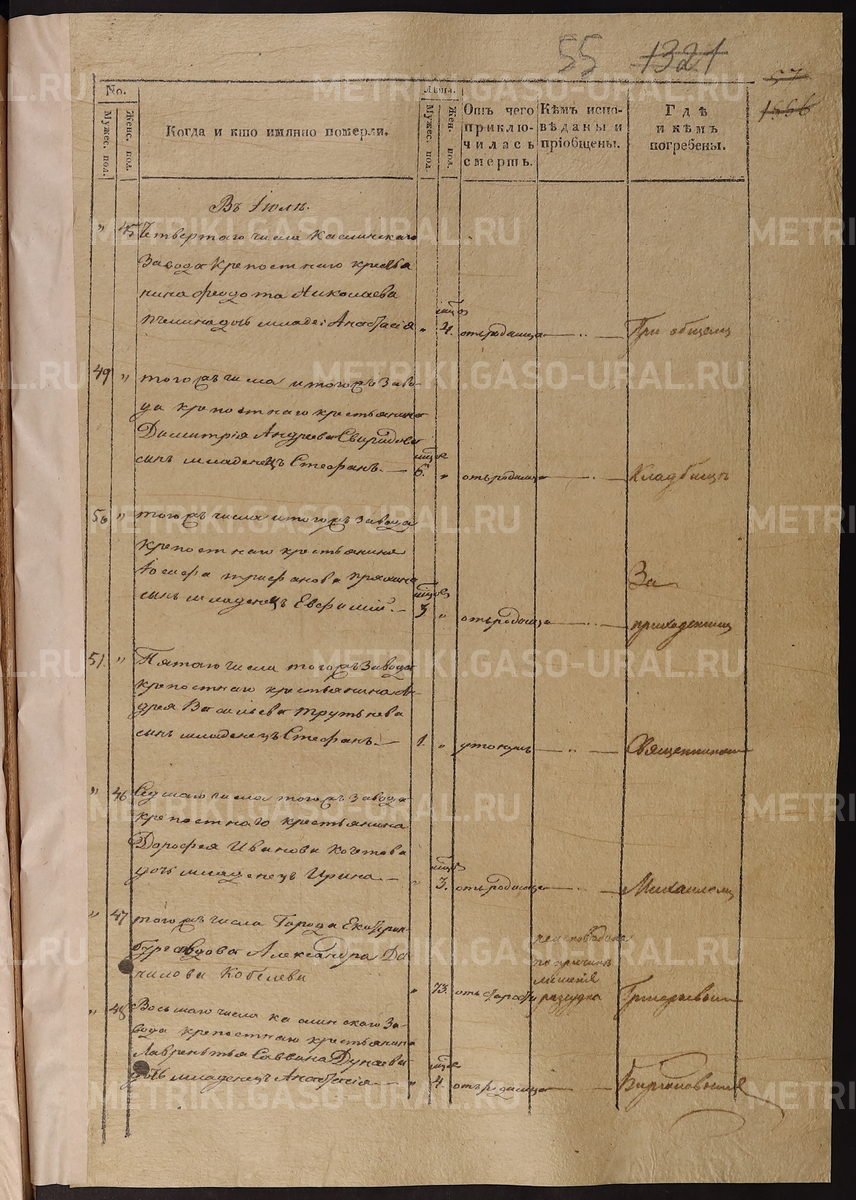 55 1321
57
1566
No.
Мужес. пол.
Женс. пол.
Когда и кто имянно померли.
Лѣта.
Мужес. пол.
Жен. пол.
Отъ чего
приклю-
чилась
смерть.
Кѣмъ испо-
вѣданы и
пріобщены.
Гдѣ
и кѣмъ
погребены.
Въ Іюлѣ.
" 45 Четвертаго числа Каслинскаго
Завода Крепостнаго крестья
нина Феодота Николаева
дочь младе: Анастасія " 4. отъ родимца При общемъ
49 " того жъ числа и того жъ Заво-
да крепостнаго крестьянина
Димитрія Андреева Свиридова
сынъ младенецъ Стефанъ. 6. " отъ родимца Кладбищѣ
50 " того жъ числа и того жъ Завода
крепостнаго крестьянина
Іосифа Трифанова
сынъ младенецъ Евфимій. 3 " отъ родимца За
приходскимъ
51. " Пятаго числа того жъ Завода
крепостнаго крестьянина Ан-
дрея Васильева Трутнева
сынъ младенецъ Стефанъ. 1. " утонулъ Священникомъ
" 46 Седмаго числа того жъ Завода
крепостнаго крестьянина
Дорофея Иванова
дочь младенецъ Ирина " 3. отъ родимца Михаиломъ
" 47 того жъ числа Города Екатерин-
бурга вдова Александра Да-
нилова Кобелева " 73. отъ старости
не исповѣдана
по причинѣ
лишенія
разсудка Григорьевымъ
" 48 Восьмаго числа Каслинскаго За-
вода крепостнаго крестьянина
Лаврентья Саввина Дунаева
дочь младенецъ Анастасія " 4. отъ родимца
METRIKI.GASO-URAL.RU